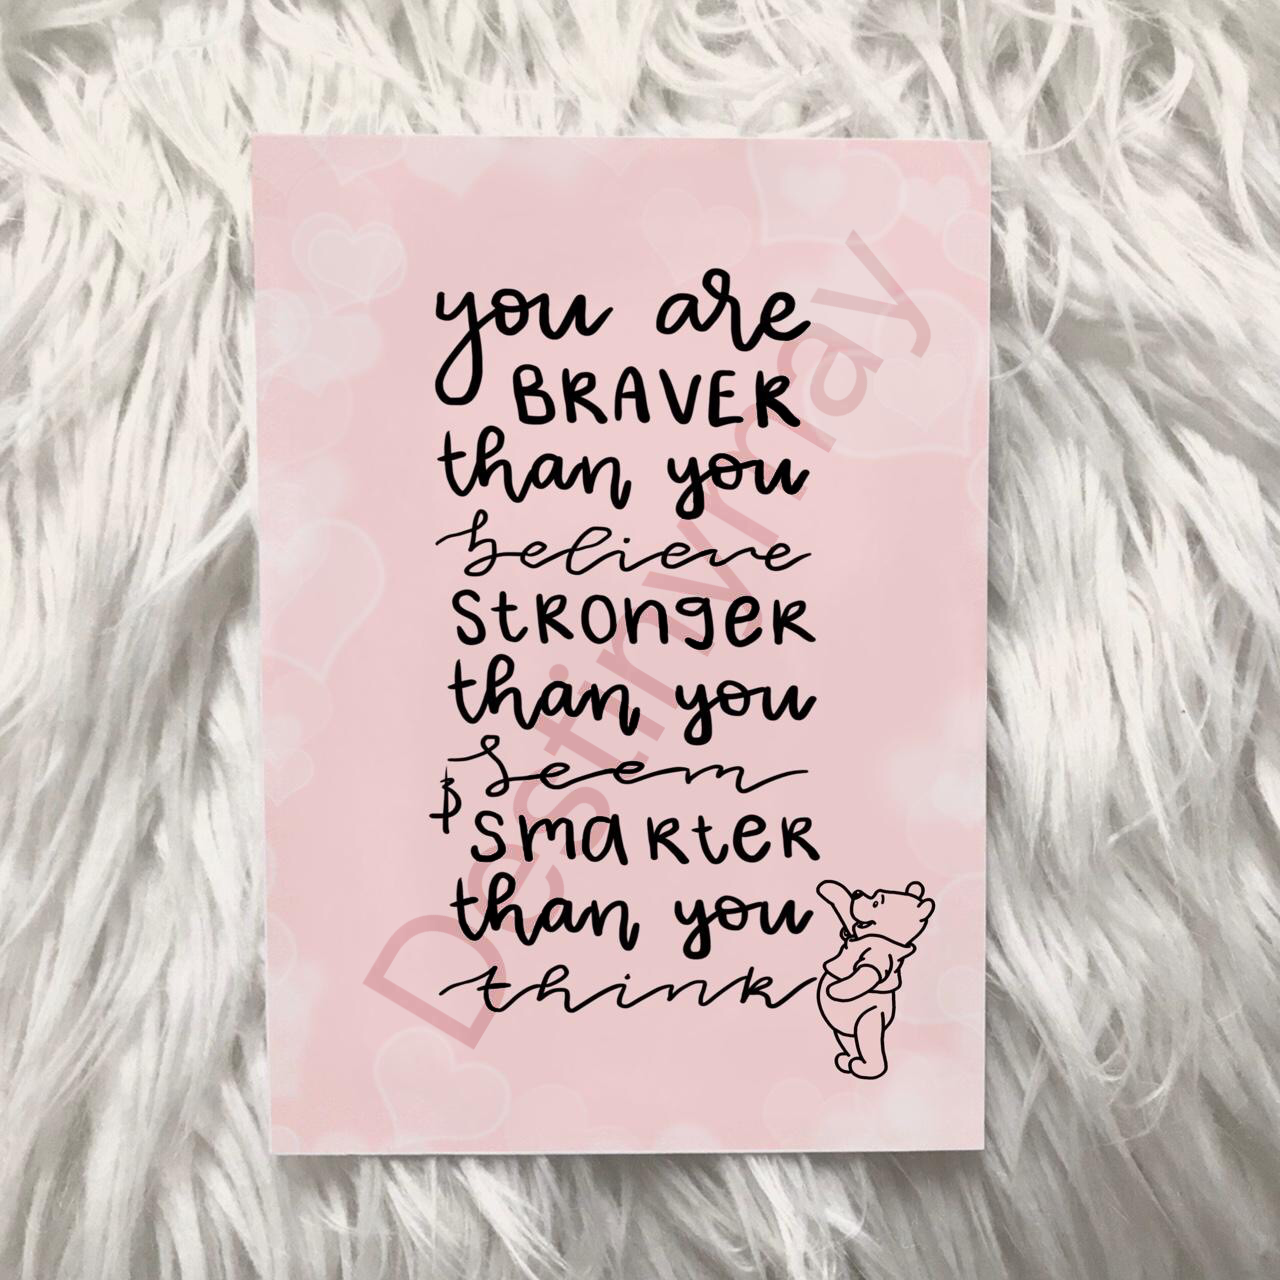 you are
BRAVER
than you
believe
stRongeR
than you
seem
& smaRteR
than you
think
Destinymay